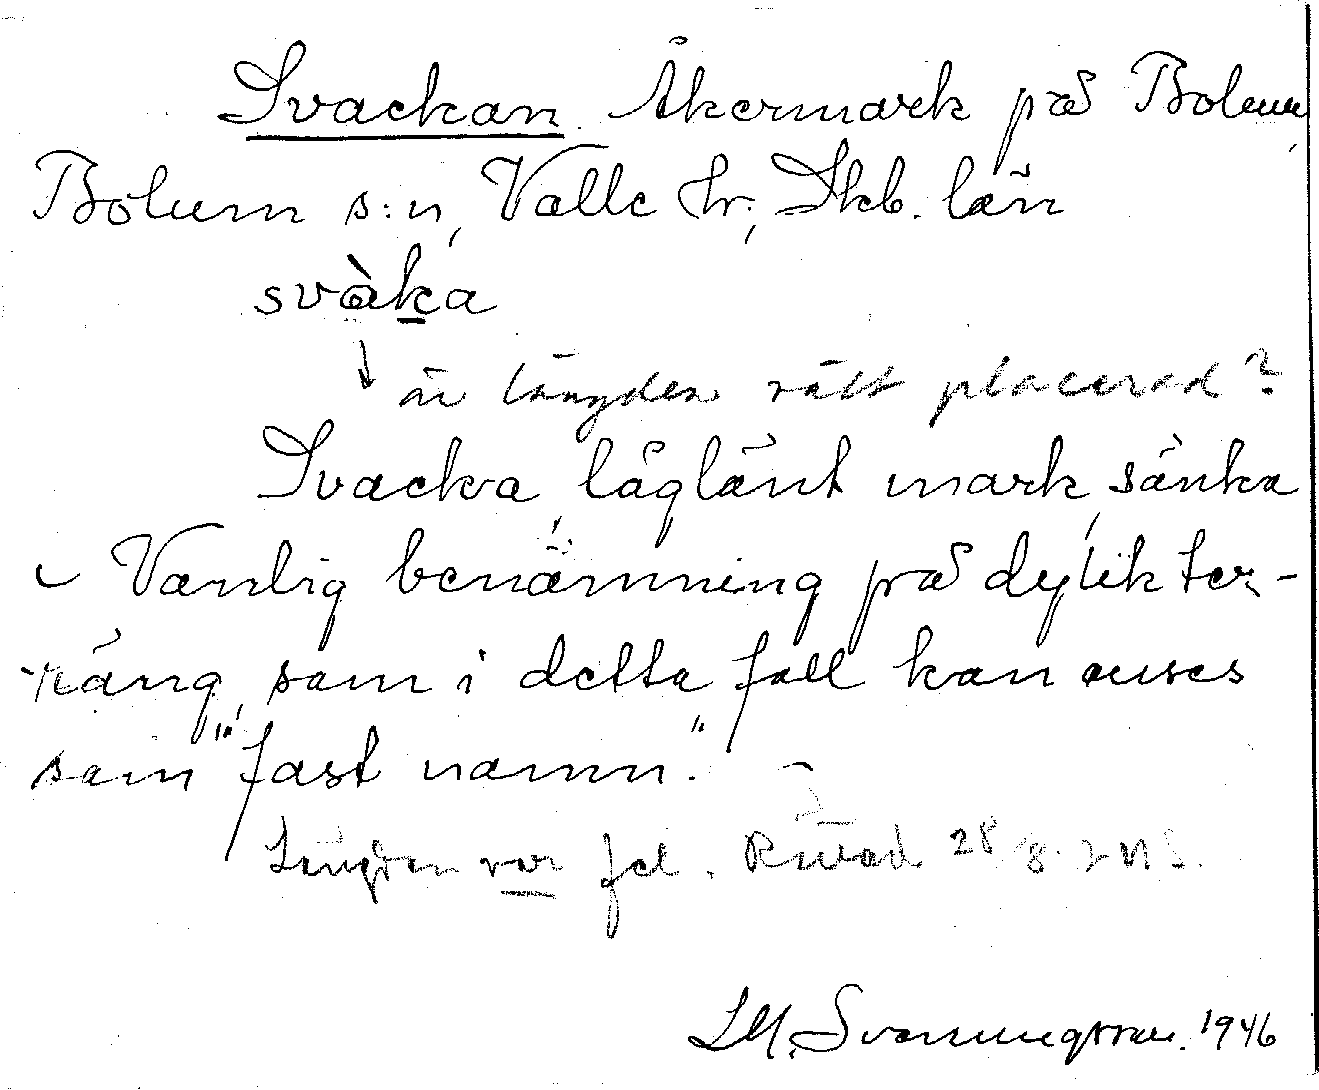 Svackan. Åkermark på Bolum,
Bolum s:n, Valle hr., Skb. län
svàka
är längden rätt placerad?
Svacka, låglänt mark, sänka
Vanlig benämning på dylik ter-
räng, som i detta fall kan anses
som "fast namn."
Längden var fel. 28/8
Svenningsson. 1946